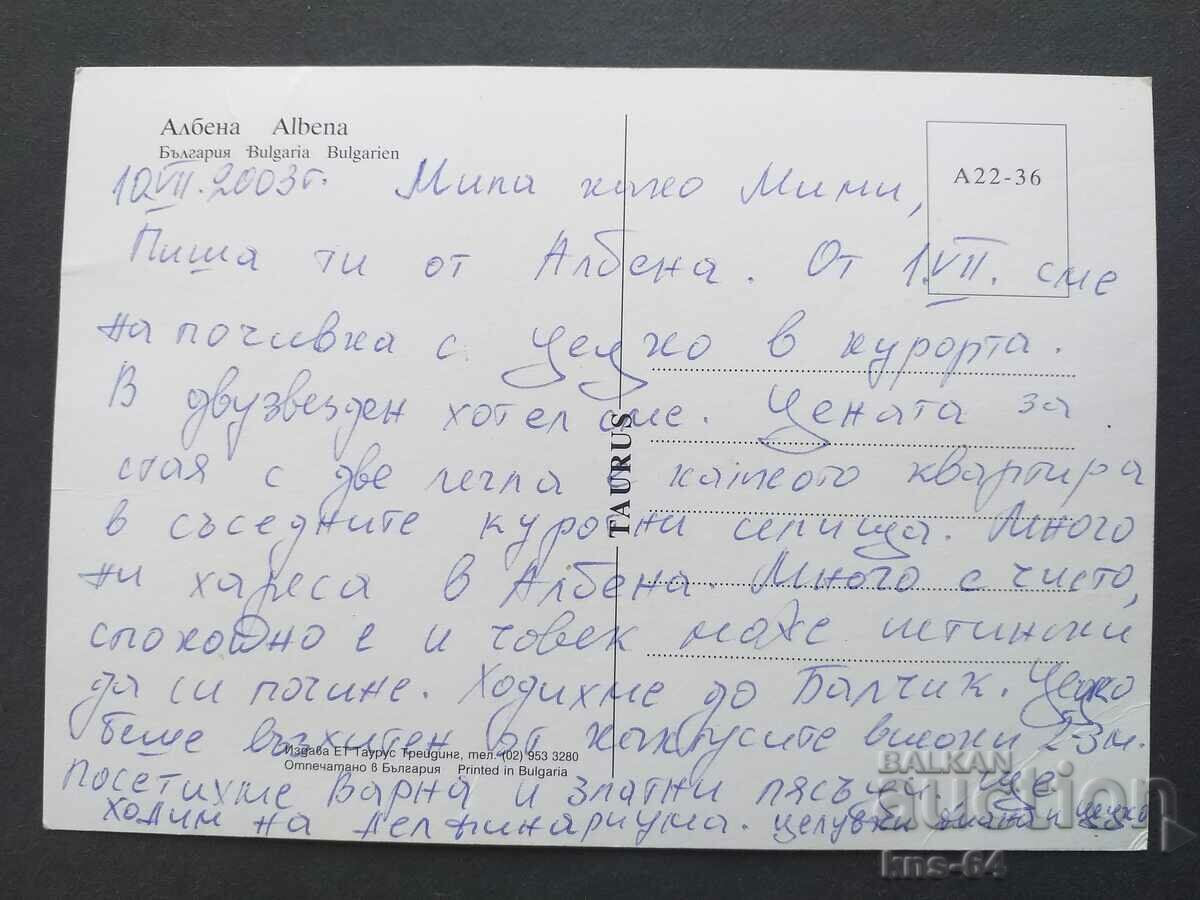 Албена Albena
България Bulgaria Bulgarien
A22-36
10.VII.2003г. Мила како Мими,
Пиша ти от Албена. От 1.VII. сме
на почивка с Цецко в курорта.
В двузвезден хотел сме. Цената за
стая с две легла е колкото квартира
в съседните курортни селища. Много
ни хареса в Албена. Много е чисто,
спокойно е и човек може истински
да си почине. Ходихме до Балчик. Цецко
беше възхитен от кактусите високи 2-3 м.
Посетихме Варна и Златни пясъци ще
ходим на делфинариума. Целувки и Цецко
TAURUS
Издава ЕТ Таурус Трейдинг, тел. (02) 953 3280
Отпечатано в България Printed in Bulgaria
BALKAN
auction
kns-64